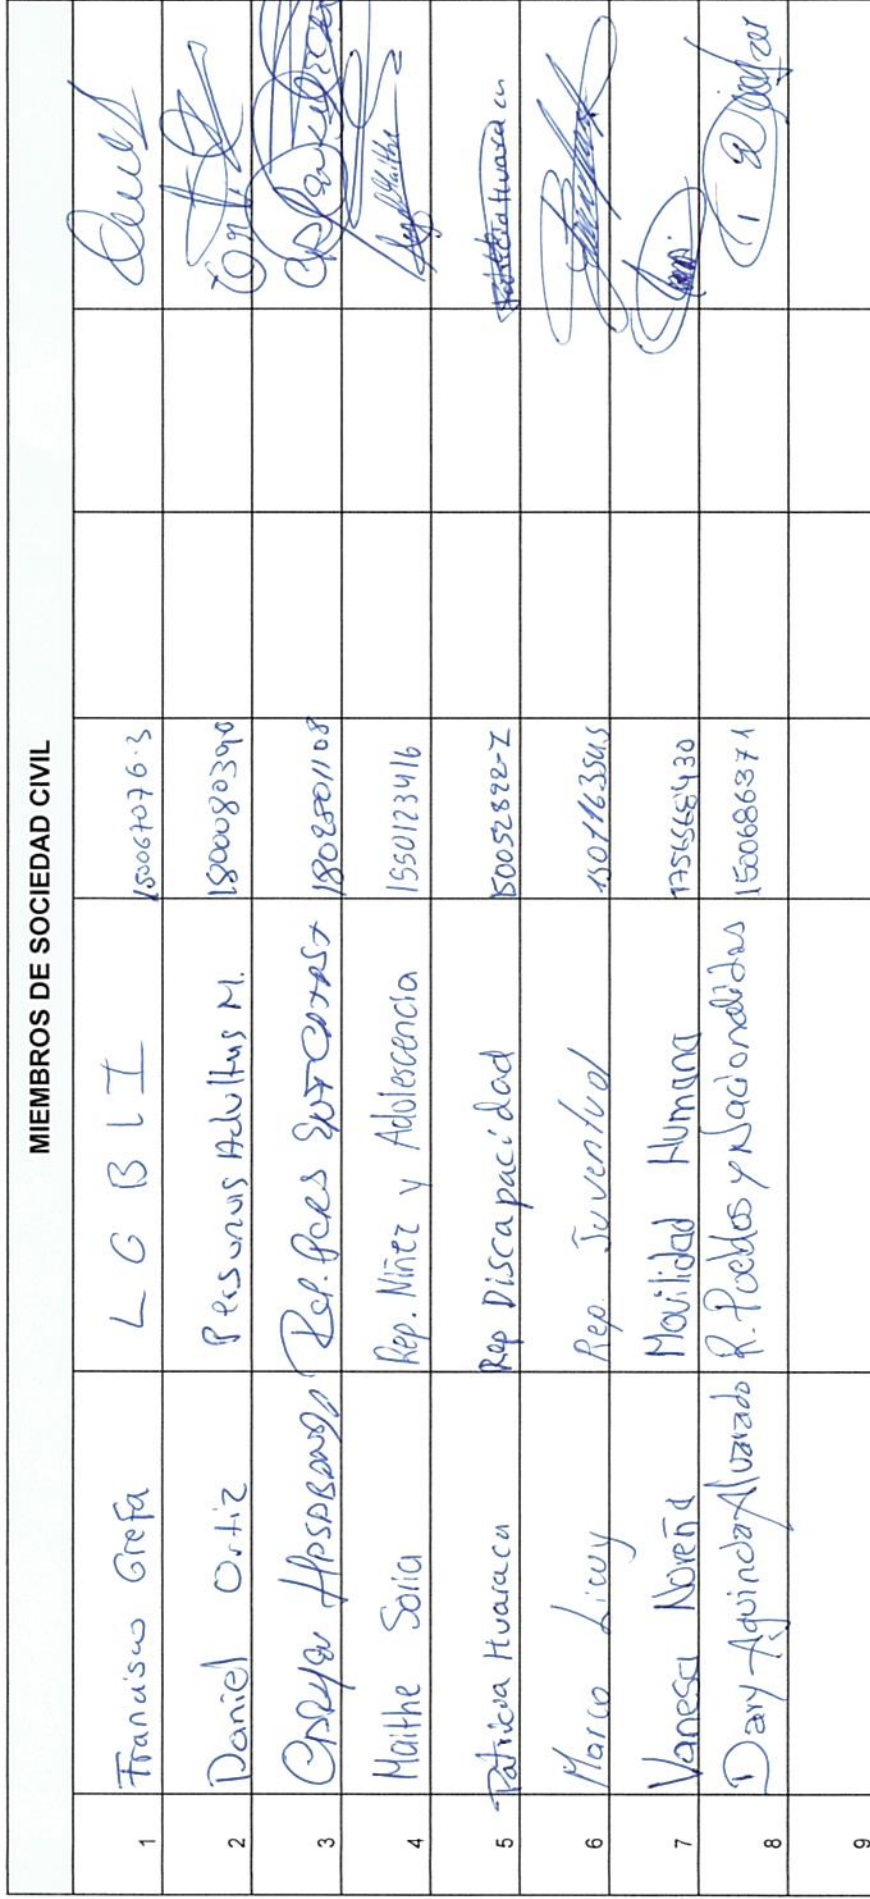 MIEMBROS DE SOCIEDAD CIVIL
1 Francisco Grefa L G B L I 150067076-3
2 Daniel Ortiz Personas Adultas M. 1500080390
3 Rep. 1802501108
4 Maithe Soria Rep. Niñez y Adolescencia 1550123416
5 Patricia Huaraca Rep Discapacidad 150052822-7 Patricia Huaraca
6 Marco Licuy Rep. Juventud 1501163545
7 Vanesa Noreña Movilidad Humana 1756568430
8 Dary Aguinda Alvarado R. Pueblos y Nacionalidades 1500686371
9